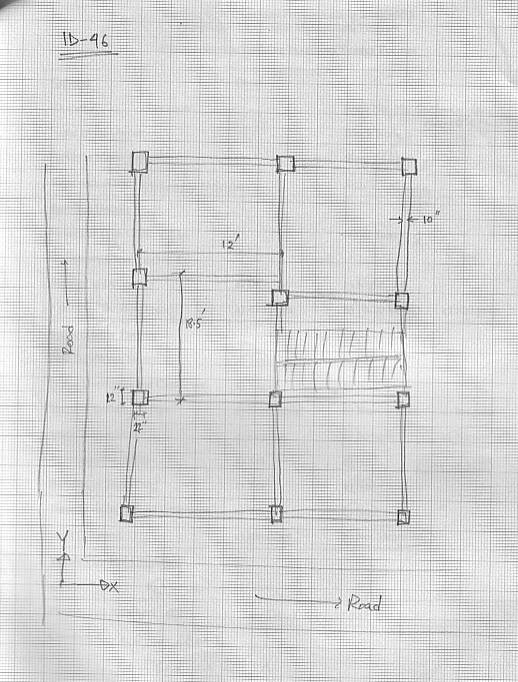 ID-46
10"
12'
18.5'
Road
12"
Y
X
Road